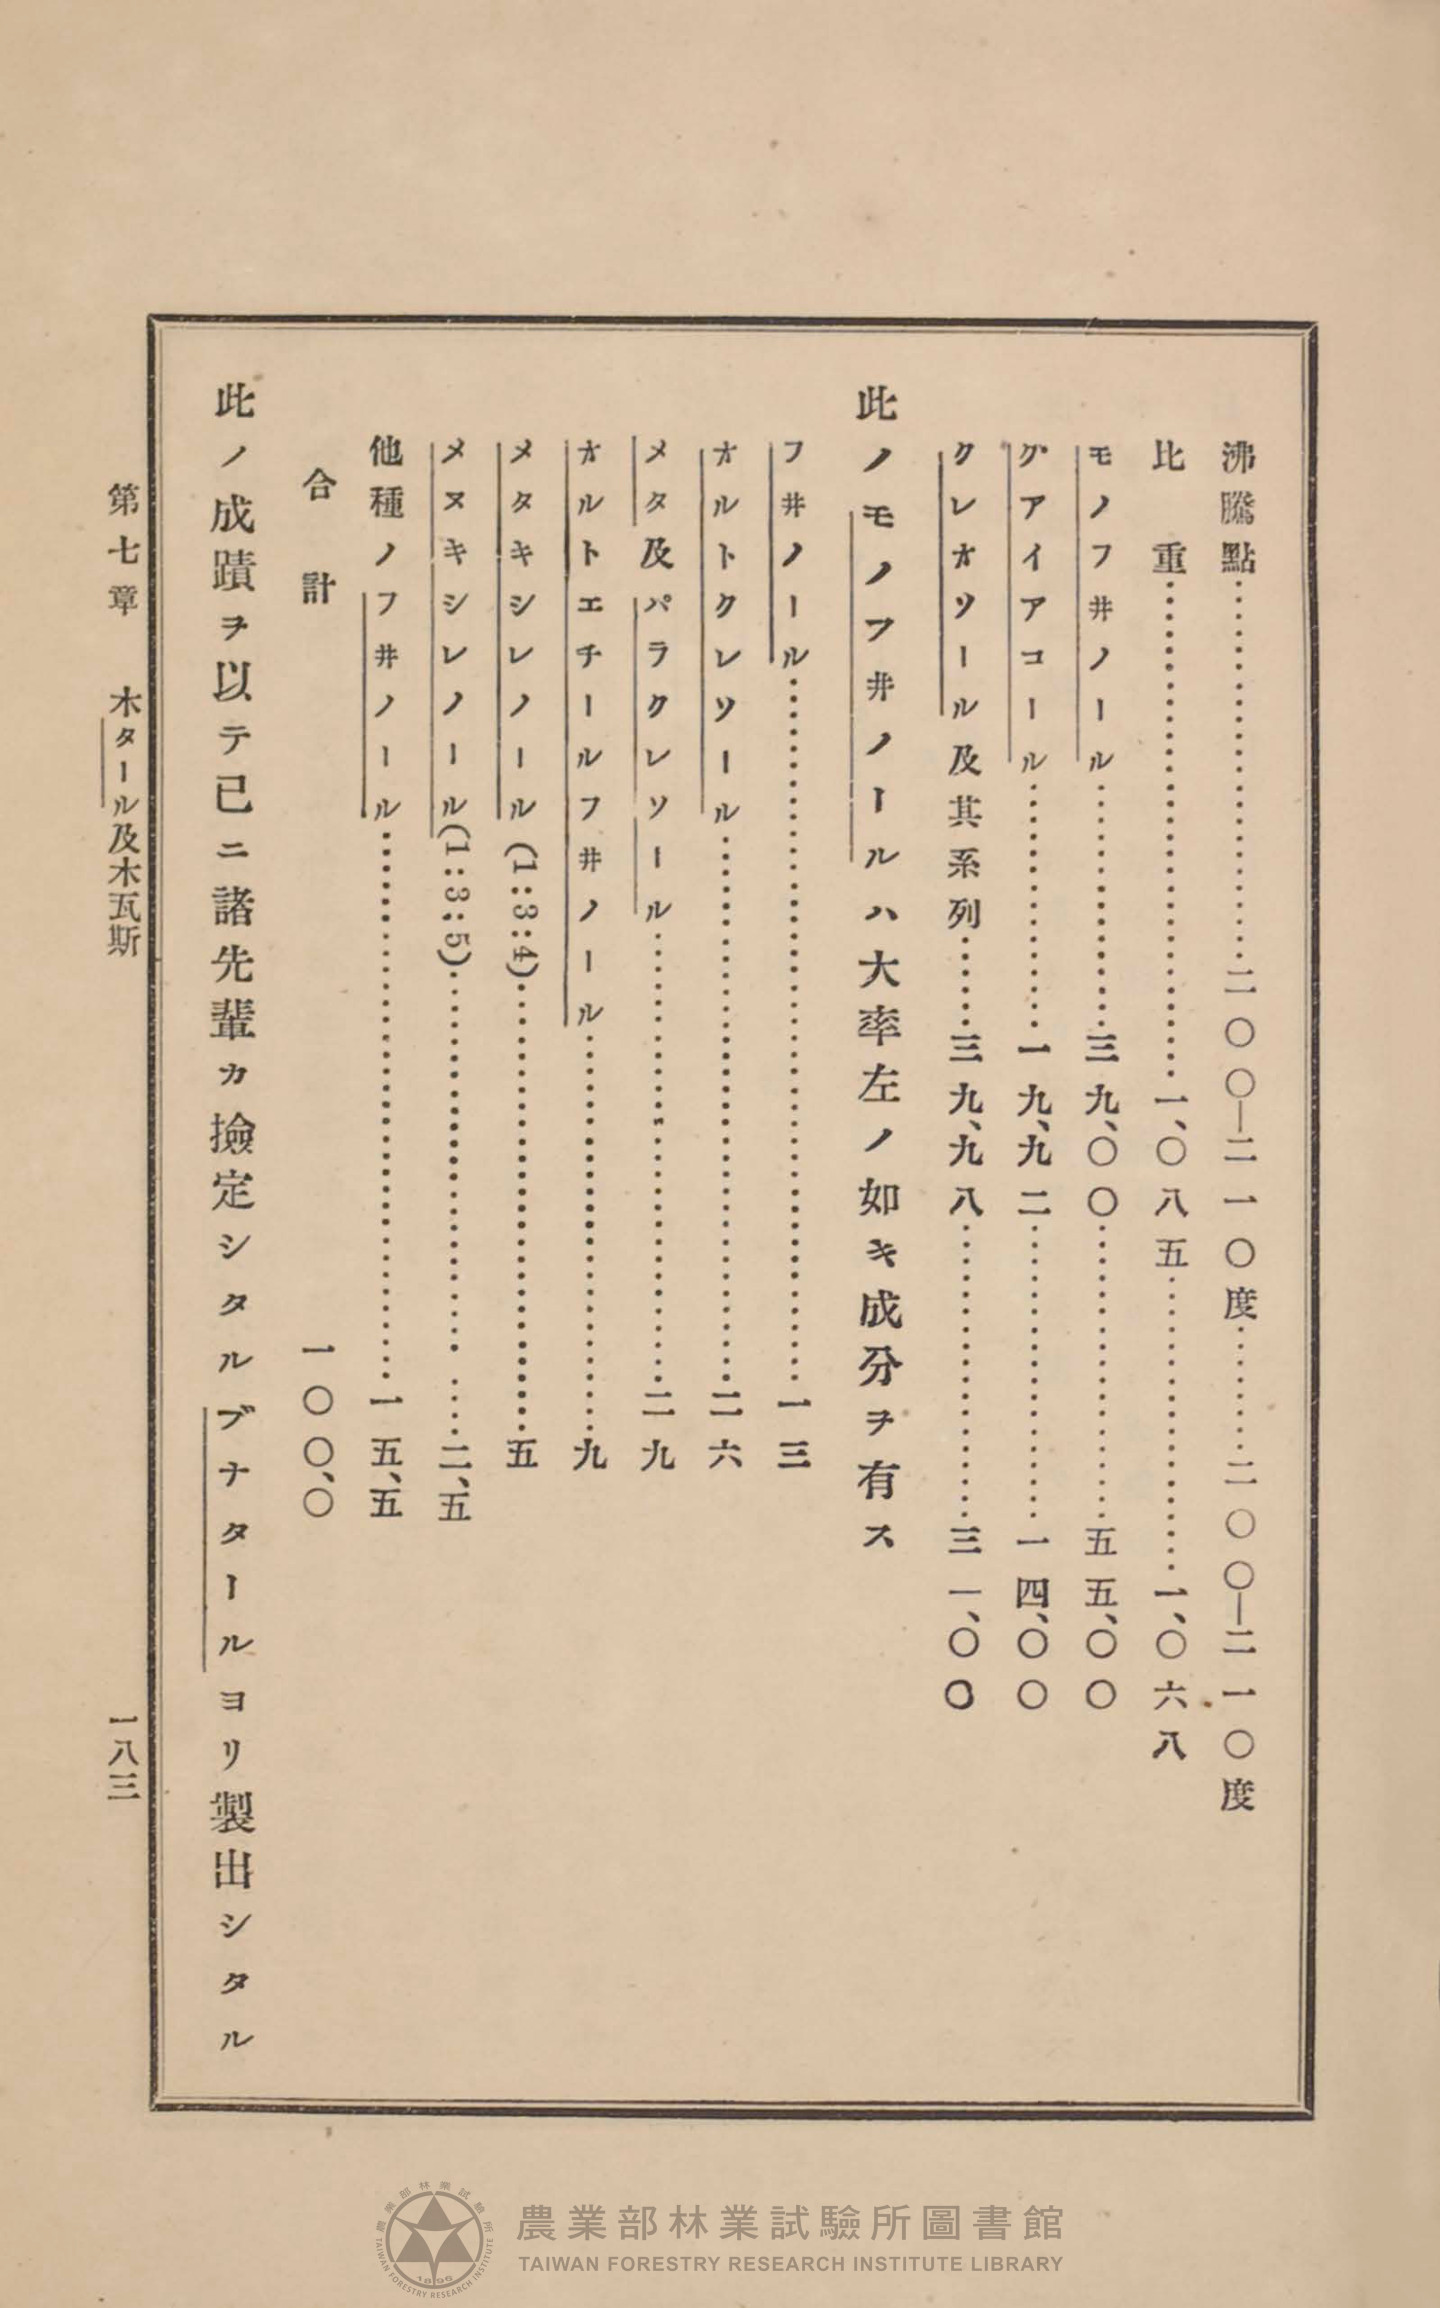 沸騰點……………………二〇〇—二一〇度………二〇〇—二一〇度
比　重……………………一、〇八五………………一、〇六八
モノフ井ノール……………三九、〇〇………………五五、〇〇
グアイアコール……………一九、九二………………一四、〇〇
クレオソール及其系列……三九、九八………………三一、〇〇
此ノモノフ井ノールハ大率左ノ如キ成分ヲ有ス
フ井ノール………………………………一三
オルトクレソール………………………二六
メタ及パラクレソール…………………二九
オルトエチールフ井ノール……………九
メタキシレノール(1:3:4)………………五
メヌキシレノール(1:3:5)………………二、五
他種ノフ井ノール………………………一五、五
合　計　一〇〇、〇
此ノ成蹟ヲ以テ已ニ諸先輩カ撿定シタルブナタールヨリ製出シタル
第七章　木タール及木瓦斯
一八三
農業部林業試驗所
TAIWAN FORESTRY RESEARCH INSTITUTE
1896
農業部林業試驗所圖書館
TAIWAN FORESTRY RESEARCH INSTITUTE LIBRARY